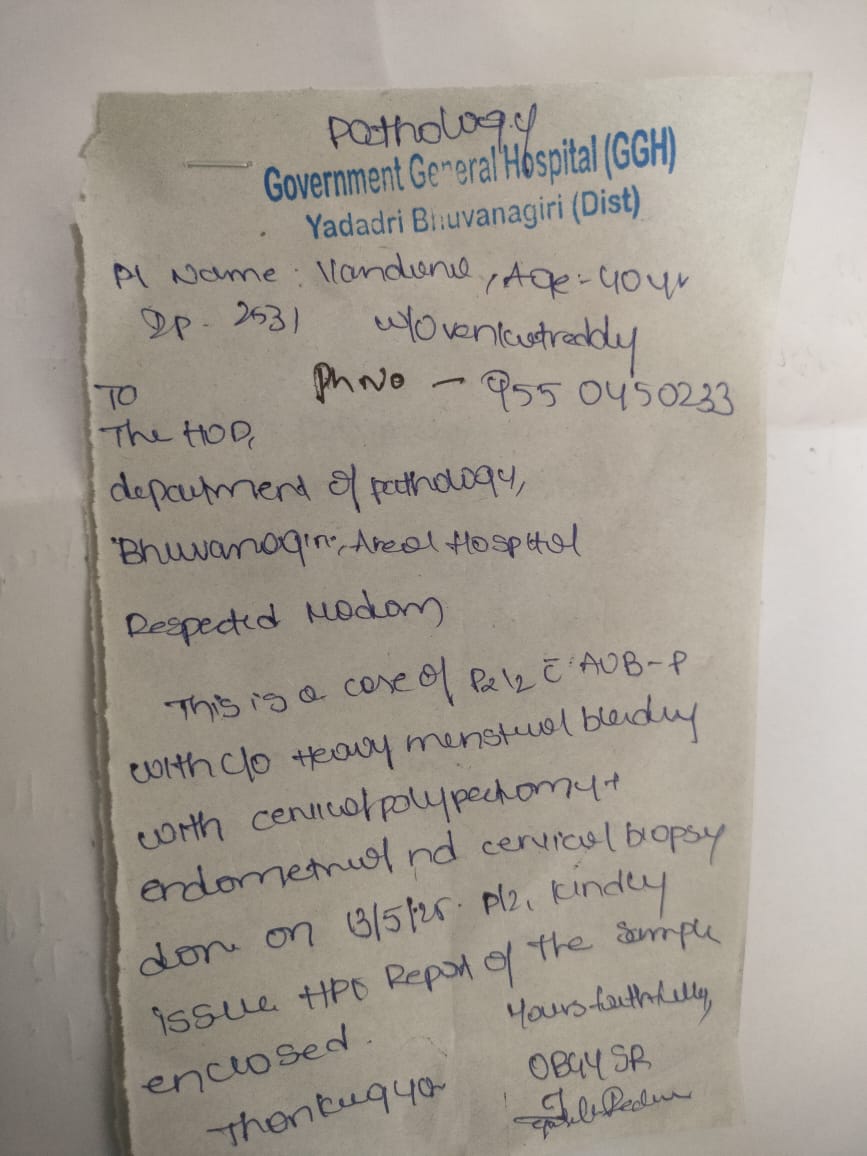 Pathology
Government General Hospital (GGH)
Yadadri Bhuvanagiri (Dist)
Pt Name : Vandana, Age - 40 yr
Ip - 2531 w/o venkatreddy
Ph No - 955 0450233
To
The HOD,
department of pathology,
Bhuvanagiri, Areal Hospital
Respected Madam
This is a case of P2L2 c̄ AUB-P
with c/o Heavy menstrual bleeding
with cervical polypectomy +
endometrial nd cervical biopsy
done on 13/5/25. Kindly
issue HPE Report of the sample
enclosed.
Yours faithfully,
Thankuq
OBGY SR